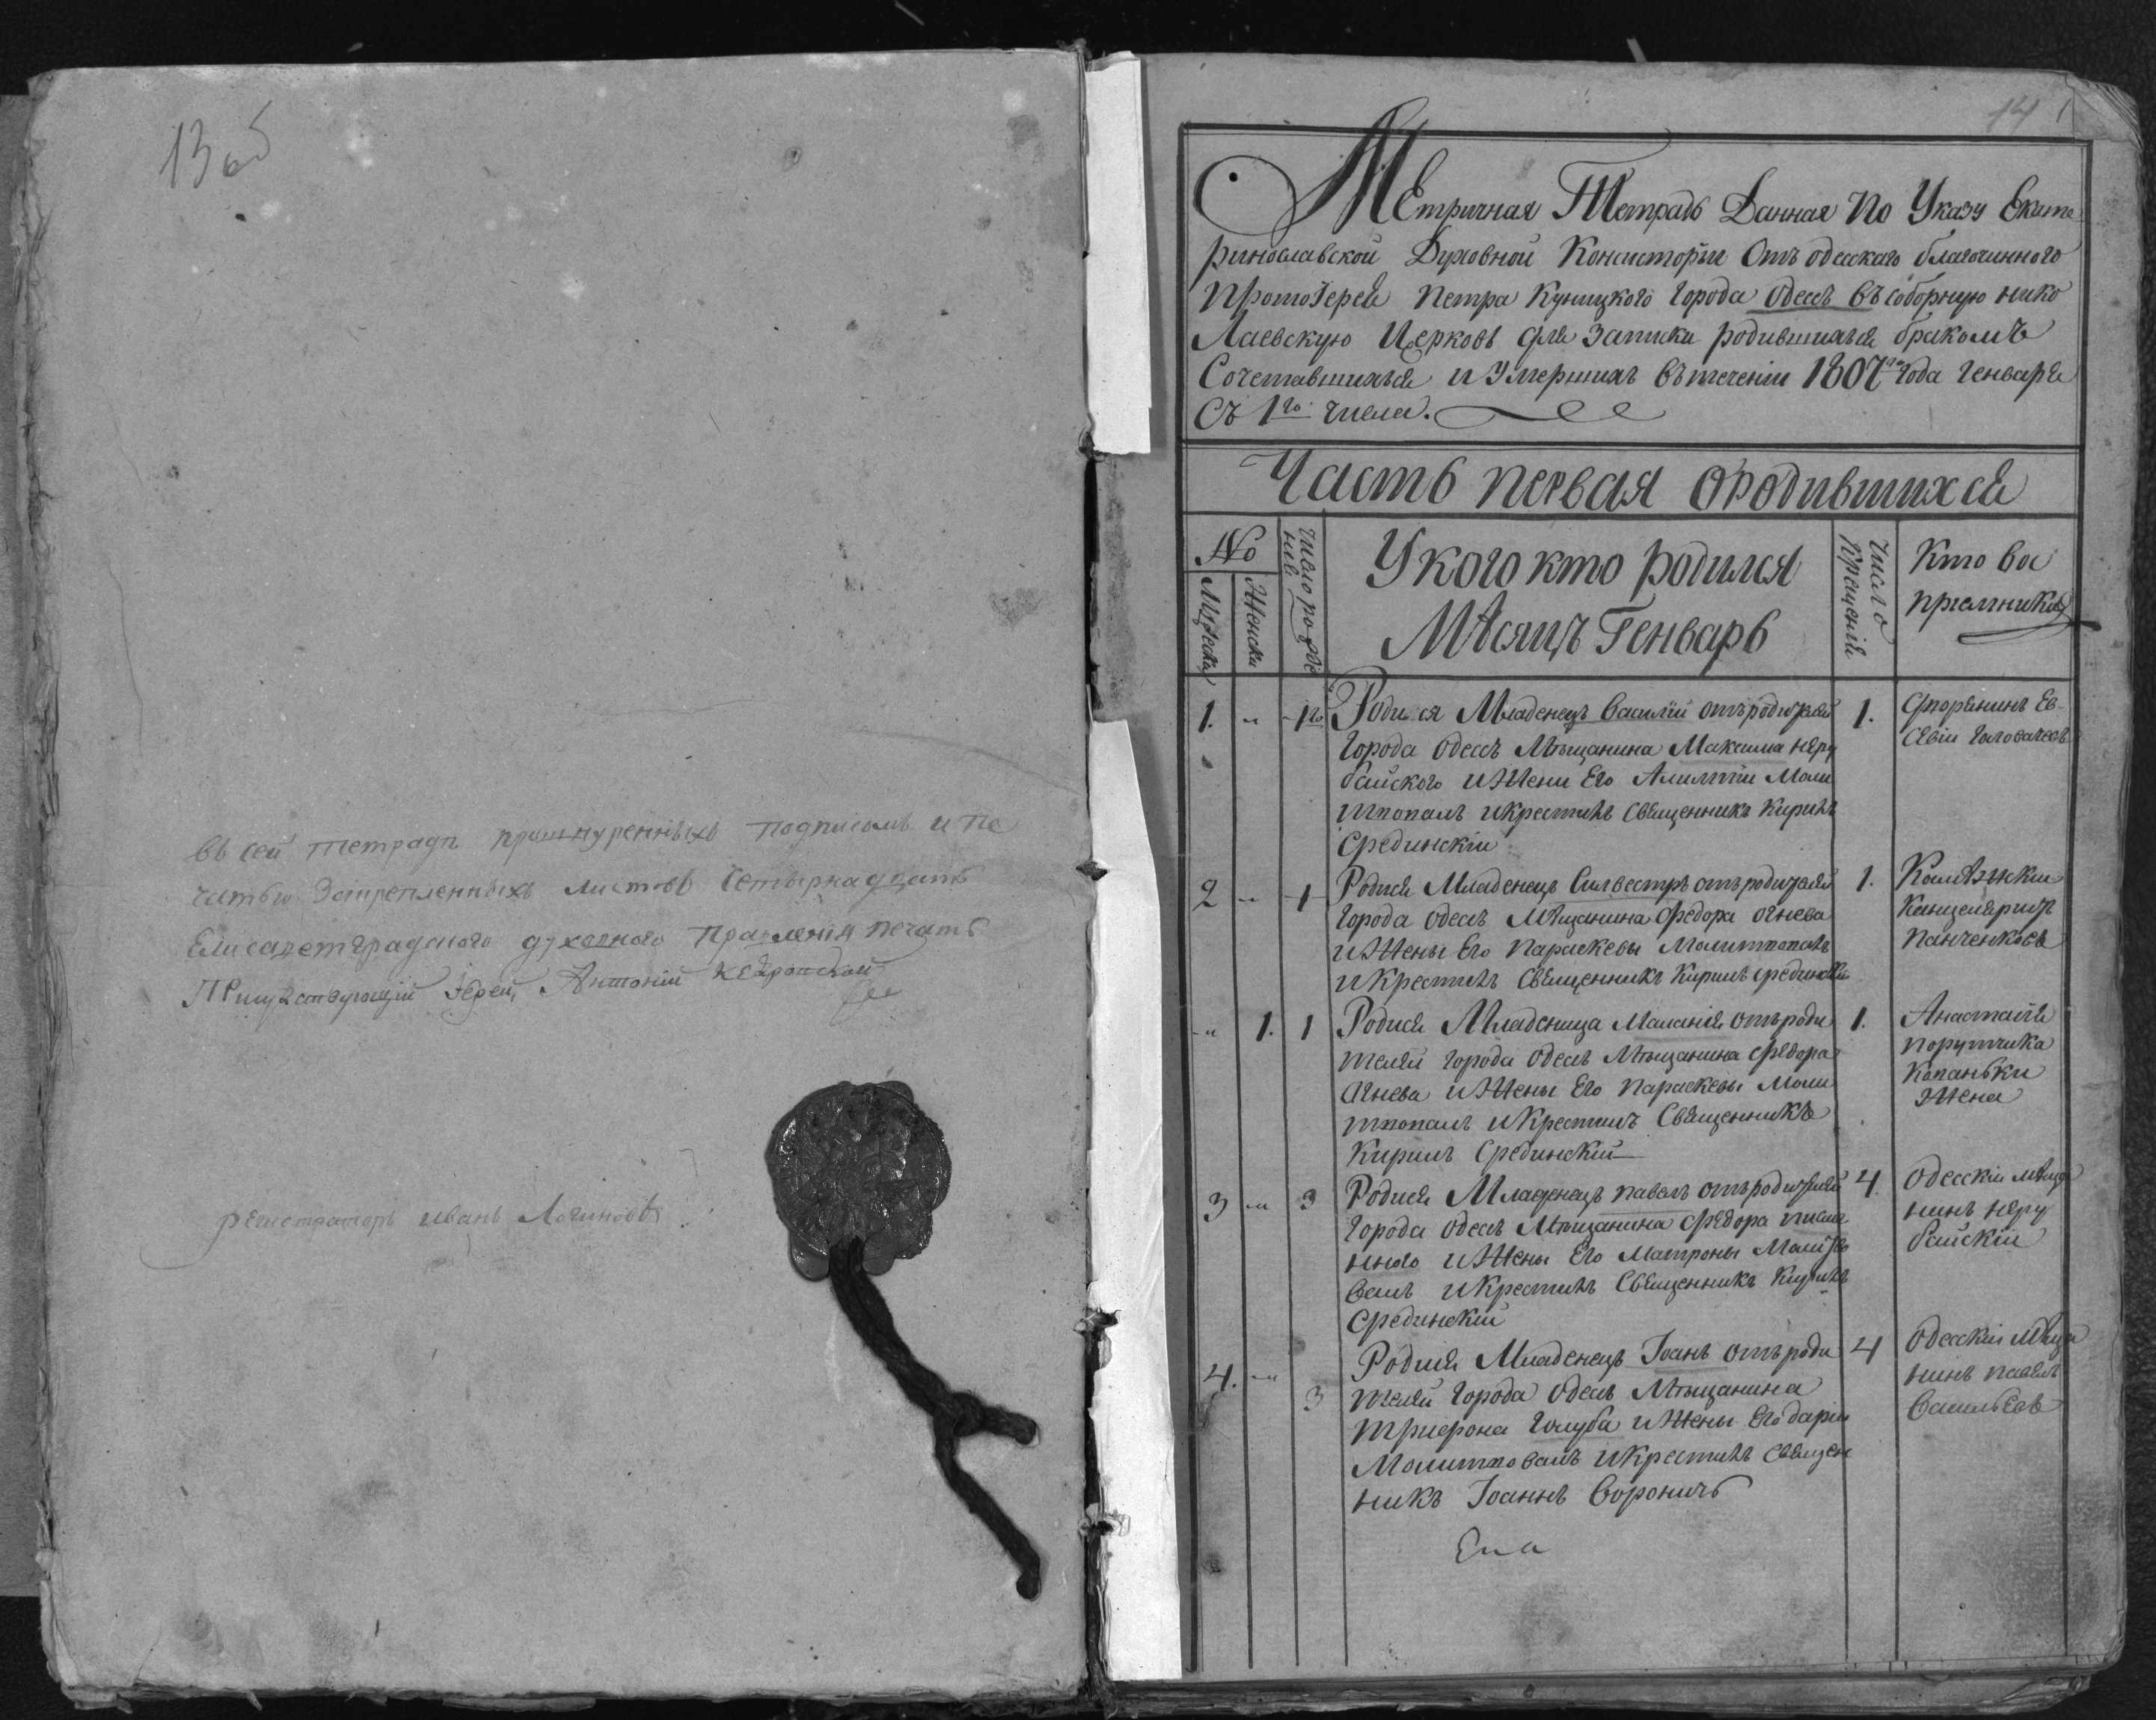 13об
Въ сей тетрадѣ прошнуренныхъ подписомъ и пе
чатью Закрепленныхъ листовъ Четырнадцать
Елисаветградского духовного Правленія печать
Присудствующій Іерей Антоній
регистраторъ иванъ Логиновъ
14
Метричная Тетрадь Данная По Указу Екате
ринославской Духовной Консисторіи Отъ одесскаго благочинного
ПротоІерея Петра Куницкого Города Одессъ Въ соборную нико
Лаевскую Церковь для Записки родившихся бракомъ
Сочетавшихъся и Умершихъ Въ теченіи 1807го Года Генваря
Съ 1го числа.
Часть первая о родившихся
№
Мужеска
Женска
Число рожде
нія
У кого кто родился
Мѣсяцъ Генварь
Число
Крещенія
Кто вос
пріемники
1. " 1го Родися Младенецъ Василій отъ родителей 1.
Города Одессъ Мѣщанина Максима Неру
байского и Жени Его Моли
твовалъ и крестилъ Священникъ Кирилъ
Срединскій
Дворянинъ Ев
севій Головачевъ
2 " 1 Родися Младенецъ Силвестръ отъ родителей 1.
Города Одессъ Мѣщанина Федора Огнева
и Жены Его Параскевы Молитвовалъ
и Крестилъ Священникъ Кирилъ Срединскій
Канцеляристъ
Панченковъ
" 1. 1 Родися Младеница Маланія отъ роди 1.
телей Города Одессъ Мѣщанина Федора
Огнева и Жены Его Параскевы Моли
твовалъ и Крестилъ Священникъ
Кирилъ Срединскій
Анастасія
порутчика
Копаньки
Жена
3 " 3 Родися Младенецъ Павелъ отъ родителей 4.
Города Одессъ Мѣщанина Федора
и Жены Его Матроны Молитво
валъ и Крестилъ Священникъ Кирилъ
Срединскій
Одесскій мѣща
нинъ Неру
байскій
4. " 3 Родися Младенецъ Іоанъ отъ роди 4
телей Города Одессъ Мѣщанина
Трифона Голуба и Жены Его Даріи
Молитвовалъ и Крестилъ Священ
никъ Іоаннъ Вороничъ
Одесскій Мѣща
нинъ Павелъ
Васильевъ